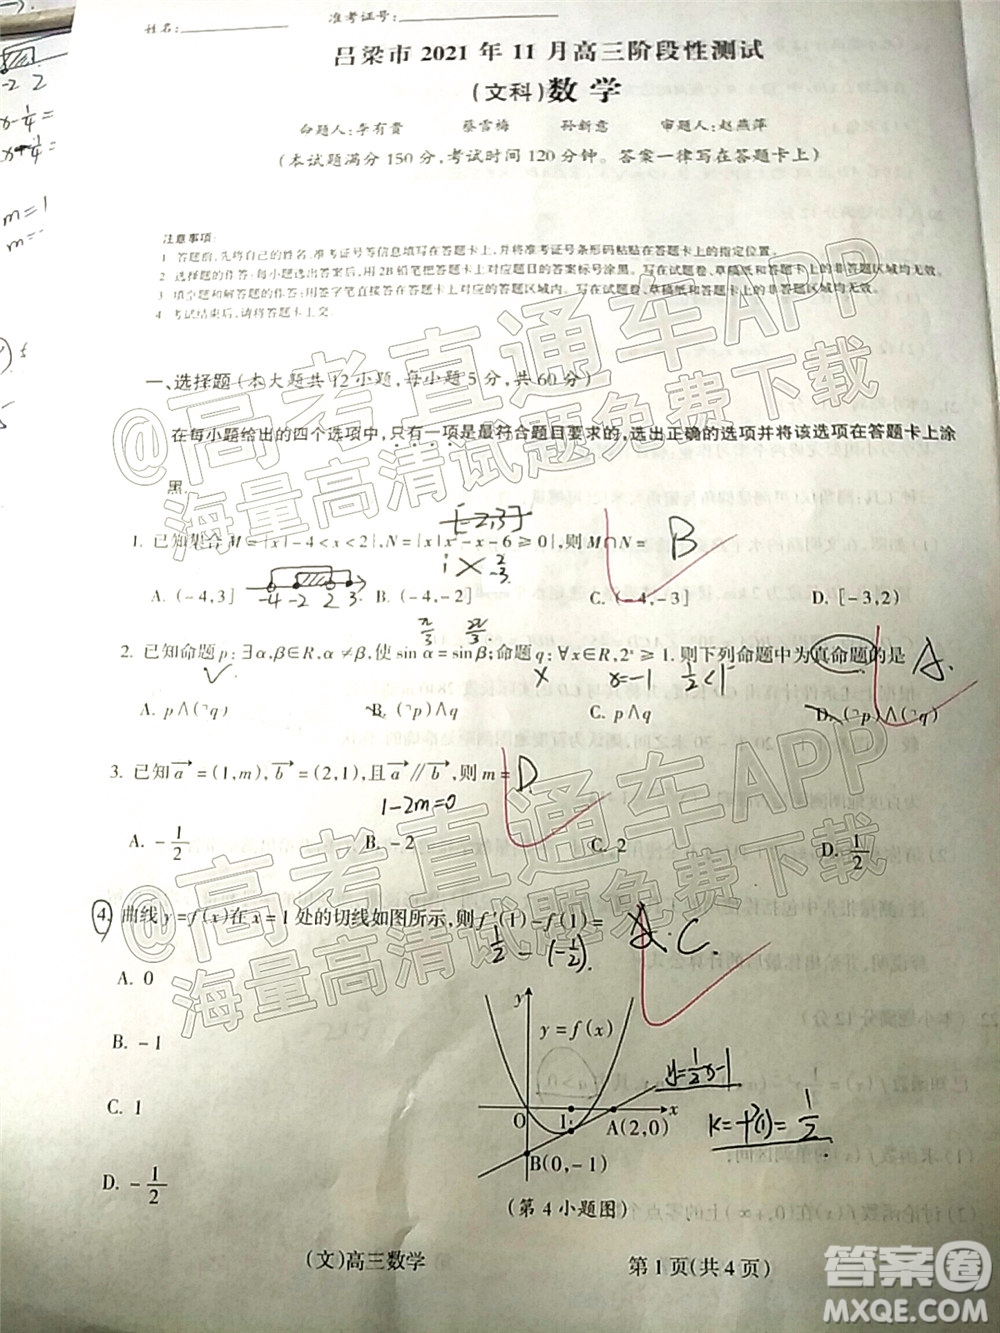 姓名: 准考证号:
吕梁市 2021 年 11 月高三阶段性测试
(文科)数学
命题人:李有贵 蔡雪梅 孙新意 审题人:赵燕萍
(本试题满分 150 分,考试时间 120 分钟。答案一律写在答题卡上)
注意事项:
1 答题前,先将自己的姓名、准考证号等信息填写在答题卡上,并将准考证号条形码粘贴在答题卡上的指定位置。
2 选择题的作答:每小题选出答案后,用 2B 铅笔把答题卡上对应题目的答案标号涂黑。写在试题卷、草稿纸和答题卡上的非答题区域均无效。
3 填空题和解答题的作答:用签字笔直接答在答题卡上对应的答题区域内。写在试题卷、草稿纸和答题卡上的非答题区域均无效。
4 考试结束后,请将答题卡上交。
一、选择题(本大题共 12 小题,每小题 5 分,共 60 分)
在每小题给出的四个选项中,只有一项是最符合题目要求的,选出正确的选项并将该选项在答题卡上涂
黑.
[-2,3]
1. 已知集合 M={x|-4<x<2},N={x|x²-x-6≥0},则 M∩N= B
A. (-4,3] B. (-4,-2] C. (-4,-3] D. [-3,2)
-4 -2 2 3
2. 已知命题 p:∃α,β∈R,α≠β,使 sin α=sinβ;命题 q:∀x∈R,2ˣ≥1.则下列命题中为真命题的是 A.
x=-1 1/2<1
A. p∧(¬q) B. (¬p)∧q C. p∧q D. (¬p)∧(¬q)
3. 已知 a=(1,m),b=(2,1),且 a∥b,则 m= D
1-2m=0
A. -1/2 B. -2 C. 2 D. 1/2
4. 曲线 y=f(x)在 x=1 处的切线如图所示,则 f'(1)-f(1)= C.
1/2-(-1/2).
A. 0
B. -1
C. 1
D. -1/2
y
y=f(x)
y=1/2x-1
O 1 A(2,0) x
k=f'(1)=1/2
B(0,-1)
(第 4 小题图)
(文)高三数学 第 1 页(共 4 页)
@高考直通车APP
海量高清试题免费下载
@高考直通车APP
海量高清试题免费下载
答案圈
MXQE.COM